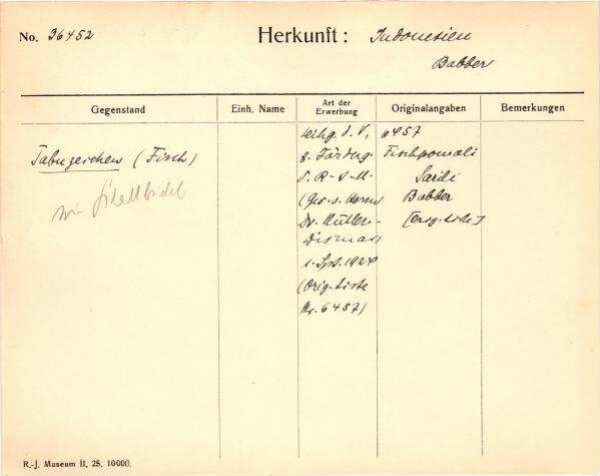 No. 36452
Herkunft: Indonesien
Babber
Gegenstand
Einh. Name
Art der Erwerbung
Originalangaben
Bemerkungen
Tabuzeichen (Fisch)
Lehg. d. V.
z. Förderg.
d. R-J-M.
(Ges. s.
Dr. Müller-
Wismar
1. Spt. 1924
(Orig. Liste
Nr. 6457)
6457
Fischpomali
Sarili
Babber
[Orig. Liste]
R.-J. Museum II, 25, 10000.